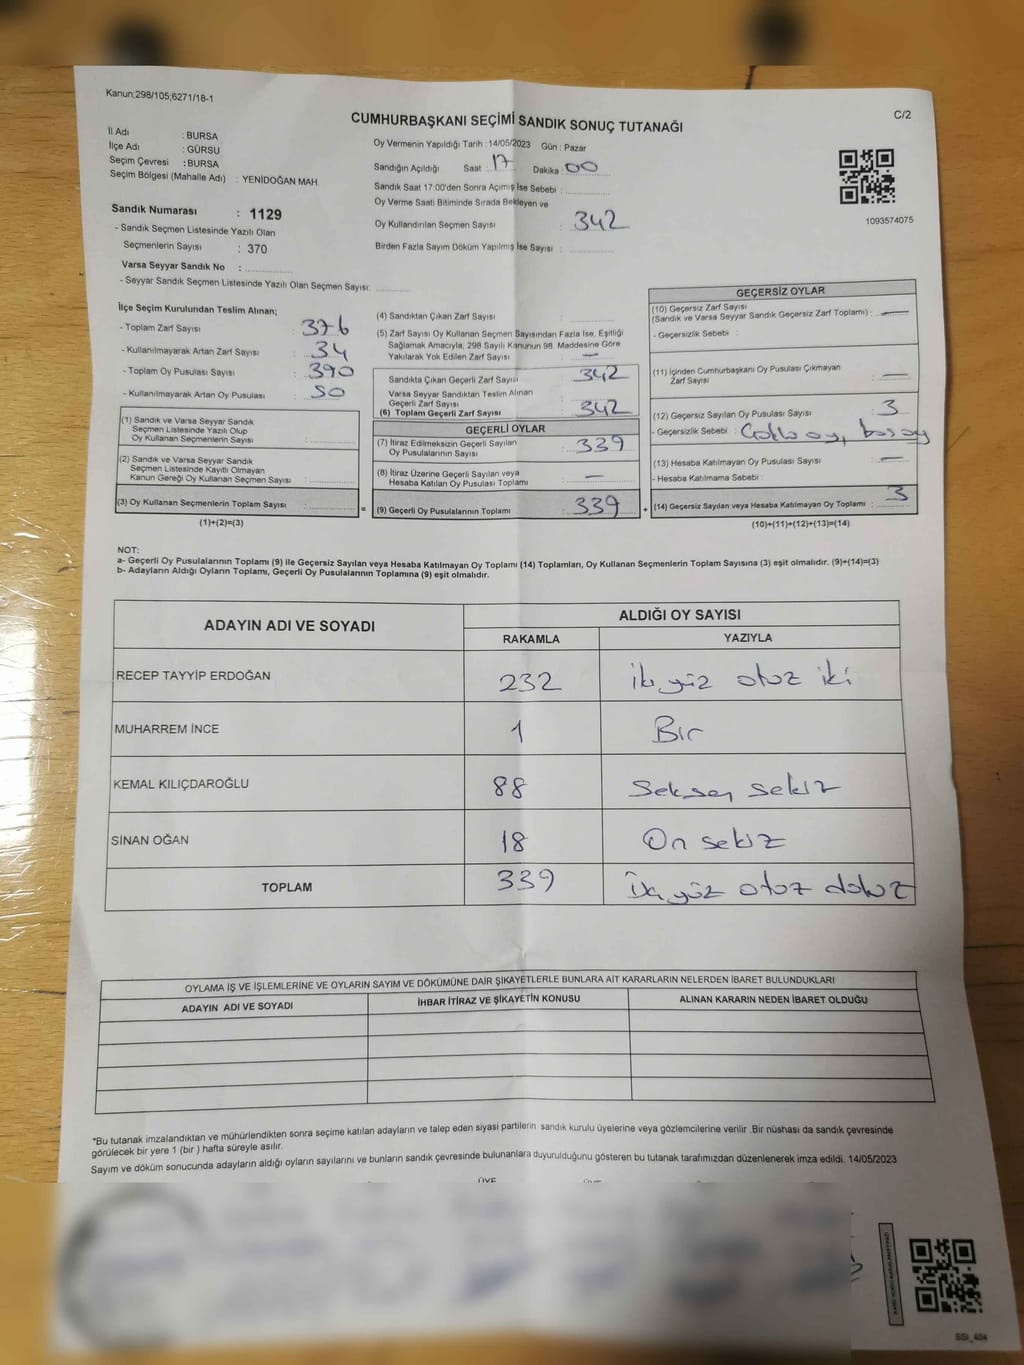 Kanun;298/105;6271/18-1
C/2
CUMHURBAŞKANI SEÇİMİ SANDIK SONUÇ TUTANAĞI
İl Adı : BURSA
İlçe Adı : GÜRSU
Seçim Çevresi : BURSA
Seçim Bölgesi (Mahalle Adı) : YENİDOĞAN MAH.
Sandık Numarası : 1129
- Sandık Seçmen Listesinde Yazılı Olan
Seçmenlerin Sayısı : 370
Varsa Seyyar Sandık No :
- Seyyar Sandık Seçmen Listesinde Yazılı Olan Seçmen Sayısı:
Oy Vermenin Yapıldığı Tarih : 14/05/2023 Gün : Pazar
Sandığın Açıldığı Saat : 17 Dakika : 00
Sandık Saat 17:00'den Sonra Açımış İse Sebebi :
Oy Verme Saati Bitiminde Sırada Bekleyen ve
Oy Kullandırılan Seçmen Sayısı : 342
Birden Fazla Sayım Döküm Yapılmış İse Sayısı :
1093574075
İlçe Seçim Kurulundan Teslim Alınan;
- Toplam Zarf Sayısı : 376
- Kullanılmayarak Artan Zarf Sayısı : 34
- Toplam Oy Pusulası Sayısı : 390
- Kullanılmayarak Artan Oy Pusulası : 50
(1) Sandık ve Varsa Seyyar Sandık
Seçmen Listesinde Yazılı Olup
Oy Kullanan Seçmenlerin Sayısı :
(2) Sandık ve Varsa Seyyar Sandık
Seçmen Listesinde Kayıtlı Olmayan
Kanun Gereği Oy Kullanan Seçmen Sayısı :
(3) Oy Kullanan Seçmenlerin Toplam Sayısı :
(1)+(2)=(3)
(4) Sandıktan Çıkan Zarf Sayısı :
(5) Zarf Sayısı Oy Kullanan Seçmen Sayısından Fazla İse, Eşitliği
Sağlamak Amacıyla, 298 Sayılı Kanunun 98. Maddesine Göre
Yakılarak Yok Edilen Zarf Sayısı : —
Sandıkta Çıkan Geçerli Zarf Sayısı : 342
Varsa Seyyar Sandıktan Teslim Alınan
Geçerli Zarf Sayısı :
(6) Toplam Geçerli Zarf Sayısı : 342
GEÇERLİ OYLAR
(7) İtiraz Edilmeksizin Geçerli Sayılan
Oy Pusulalarının Sayısı : 339
(8) İtiraz Üzerine Geçerli Sayılan veya
Hesaba Katılan Oy Pusulası Toplamı : —
(9) Geçerli Oy Pusulalarının Toplamı : 339
GEÇERSİZ OYLAR
(10) Geçersiz Zarf Sayısı
(Sandık ve Varsa Seyyar Sandık Geçersiz Zarf Toplamı) : —
- Geçersizlik Sebebi :
(11) İçinden Cumhurbaşkanı Oy Pusulası Çıkmayan
Zarf Sayısı : —
(12) Geçersiz Sayılan Oy Pusulası Sayısı : 3
- Geçersizlik Sebebi : oy, boş oy
(13) Hesaba Katılmayan Oy Pusulası Sayısı : —
- Hesaba Katılmama Sebebi :
(14) Geçersiz Sayılan veya Hesaba Katılmayan Oy Toplamı : 3
(10)+(11)+(12)+(13)=(14)
NOT:
a- Geçerli Oy Pusulalarının Toplamı (9) ile Geçersiz Sayılan veya Hesaba Katılmayan Oy Toplamı (14) Toplamları, Oy Kullanan Seçmenlerin Toplam Sayısına (3) eşit olmalıdır. (9)+(14)=(3)
b- Adayların Aldığı Oyların Toplamı, Geçerli Oy Pusulalarının Toplamına (9) eşit olmalıdır.
ADAYIN ADI VE SOYADI ALDIĞI OY SAYISI
RAKAMLA YAZIYLA
RECEP TAYYİP ERDOĞAN 232 iki yüz otuz iki
MUHARREM İNCE 1 Bir
KEMAL KILIÇDAROĞLU 88 Seksen sekiz
SİNAN OĞAN 18 On sekiz
TOPLAM 339 Üç yüz otuz dokuz
OYLAMA İŞ VE İŞLEMLERİNE VE OYLARIN SAYIM VE DÖKÜMÜNE DAİR ŞİKAYETLERLE BUNLARA AİT KARARLARIN NELERDEN İBARET BULUNDUKLARI
ADAYIN ADI VE SOYADI İHBAR İTİRAZ VE ŞİKAYETİN KONUSU ALINAN KARARIN NEDEN İBARET OLDUĞU
*Bu tutanak imzalandıktan ve mühürlendikten sonra seçime katılan adayların ve talep eden siyasi partilerin sandık kurulu üyelerine veya gözlemcilerine verilir .Bir nüshası da sandık çevresinde
görülecek bir yere 1 (bir ) hafta süreyle asılır.
Sayım ve döküm sonucunda adayların aldığı oyların sayılarını ve bunların sandık çevresinde bulunanlara duyurulduğunu gösteren bu tutanak tarafımızdan düzenlenerek imza edildi. 14/05/2023